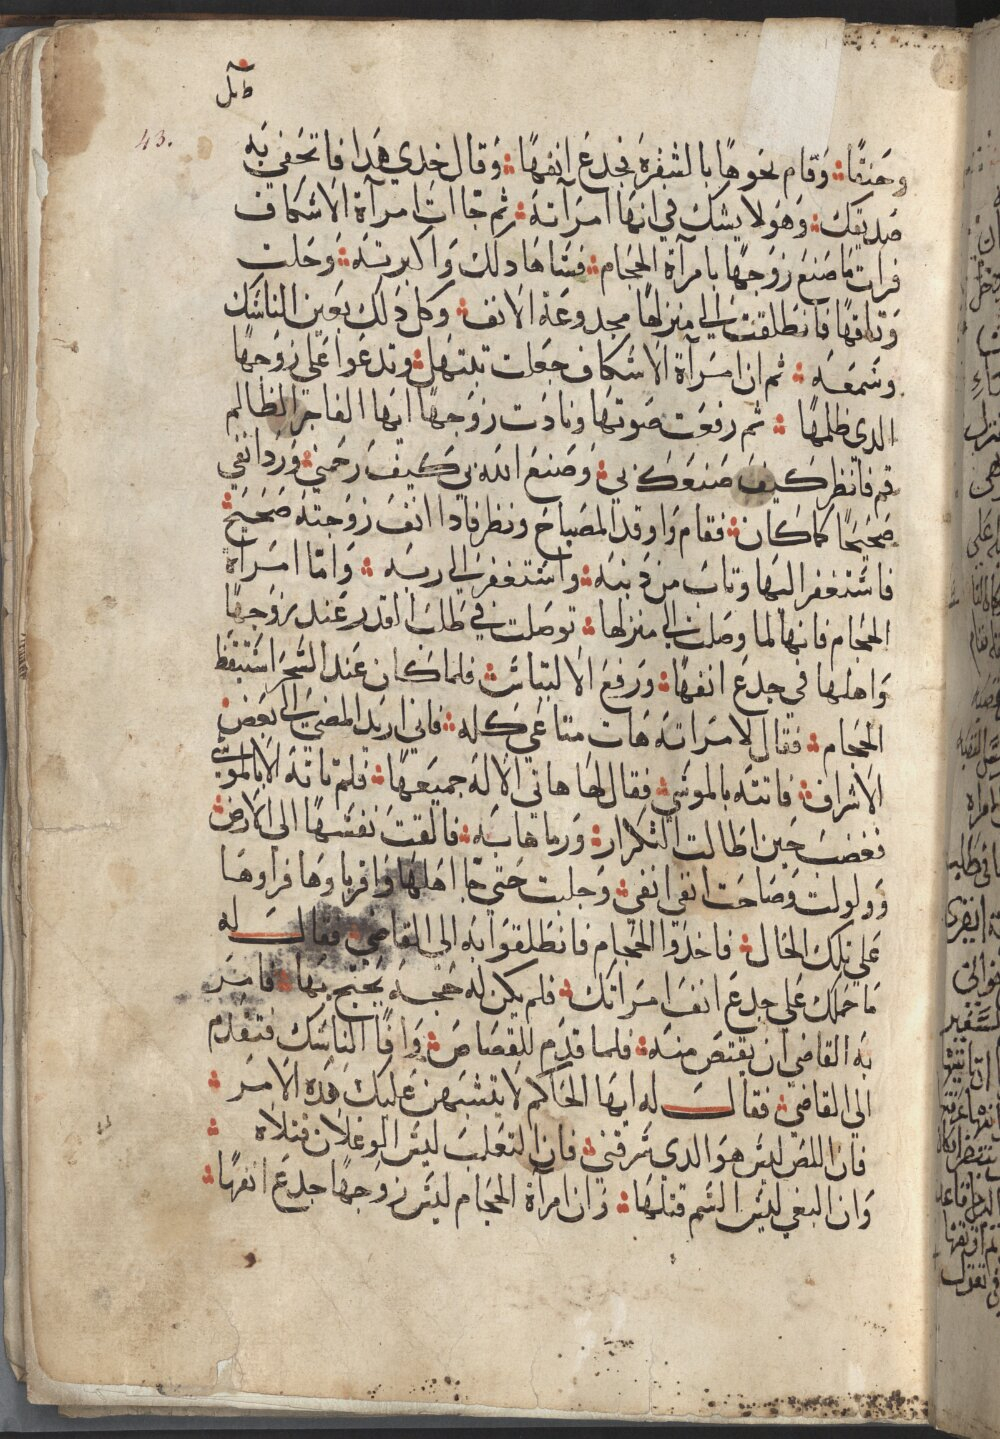 43.
وحنقًا وقام نحوها بالشفرة فجدع انفها وقال خدي هدا فاتحفي به
صديقك وهو لا يشك في انها امرآته ثم جاات امرآة الاسكاف
فرات ما صنع زوجها بامرآة الحجام فساها دلك واكبرته وحلت
وثاقها فانطلقت الى منزلها مجدوعة الانف وكل دلك بعين الناسك
وسمعه ثم ان امرآة الاسكاف جعلت تبتهل وتدعوا على زوجها
الدي ظلمها ثم رفعت صوتها ونادت زوجها ايها الفاجر الظالم
قم فانظر كيف صنعك بي وصنع الله بي كيف رحمني ورد انفي
صحيحًا كما كان فقام واوقد المصباح ونظر فادا انف زوجته صحيح
فاستغفر اليها وتاب من دنبه واستغفر الى ربه واما امرآة
الحجام فانها لما وصلت الى منزلها توصلت في طلب العدر عند زوجها
واهلها في جدع انفها ورفع الالتباس فلما كان عند السحر استيقظ
الحجام فقال لامراته هات متاعي كله فاني اريد المضي الى بعض
الاشراف فاتته بالموسى فقال لها هاتي الاله جميعها فلم تاته الا بالموسى
فغضب حين اطالت التكرار ورماها به فالقت نفسها الى الارض
وولولت وصاحت انفي انفي وجلبت حتى جا اهلها واقرباوها فراوها
على تلك الحال فاخدوا الحجام فانطلقوا به الى القاضي فقال له
ما حملك على جدع انف امراتك فلم يكن له حجه يحتج بها فامر
به القاضي ان يقتص منه فلما قدم للقصاص وافا الناسك فتقدم
الى القاضي فقال له ايها الحاكم لا يتشبهن عليك هده الامر
فان اللص ليس هو الدي سرقني فان الثعلب ليس الوعلان قتلاه
وان البغي ليس السم قتلها وان امرآة الحجام ليس زوجها جدع انفها